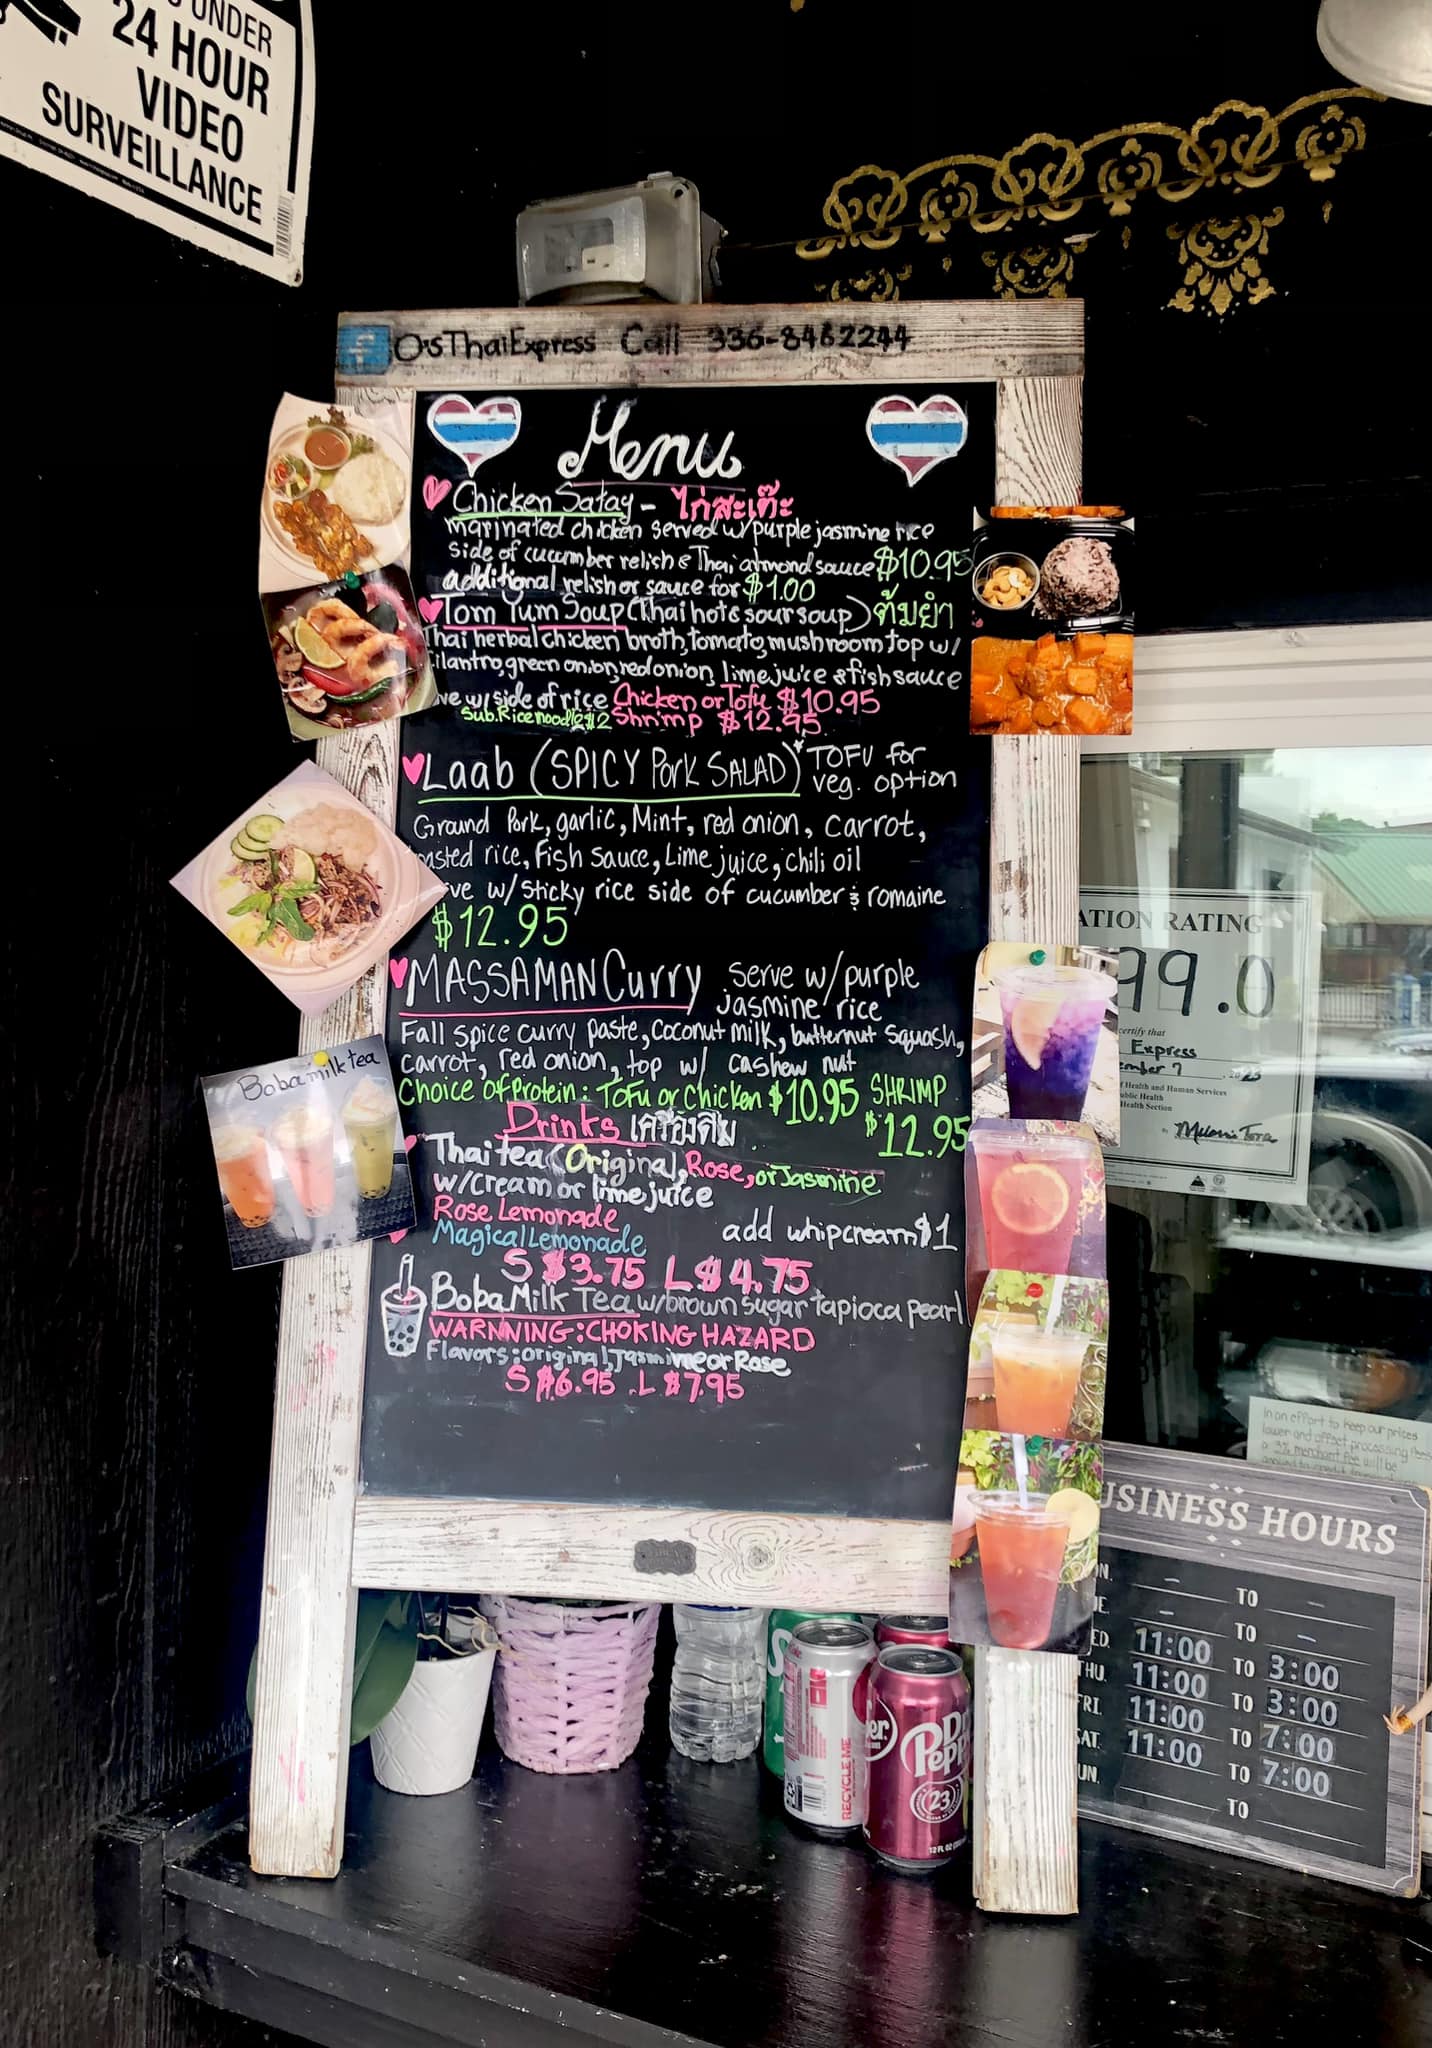 UNDER
24 HOUR
VIDEO
SURVEILLANCE
O'sThaiExpress Call 336-8482244
Menu
Chicken Satay - ไก่สะเต๊ะ
marinated chicken served w/purple jasmine rice
side of cucumber relish & Thai almond sauce $10.95
additional relish or sauce for $1.00
Tom Yum Soup (Thai hot & sour soup) ต้มยำ
Thai herbal chicken broth, tomato, mushroom top w/
ilantro, green onion, red onion, lime juice & fish sauce
ve w/side of rice Chicken or Tofu $10.95
Sub. Rice noodle $2 Shrimp $12.95
Laab (SPICY Pork SALAD) *TOFU for
veg. option
Ground Pork, garlic, Mint, red onion, carrot,
asted rice, Fish sauce, Lime juice, chili oil
ve w/sticky rice side of cucumber & romaine
$12.95
MASSAMAN Curry serve w/purple
jasmine rice
Fall spice curry paste, Coconut milk, butternut squash,
carrot, red onion, top w/ cashew nut
Choice of Protein: Tofu or Chicken $10.95 SHRIMP
$12.95
Drinks เครื่องดื่ม
Thai tea (Original, Rose, or Jasmine
w/cream or lime juice
Rose Lemonade
Magical Lemonade add whipcream $1
S $3.75 L $4.75
Boba Milk Tea w/brown sugar tapioca pearl
WARNNING: CHOKING HAZARD
Flavors: original, Jasmine or Rose
S $6.95 L $7.95
Boba milk tea
ATION RATING
99.0
certify that
Express
ember 7
f Health and Human Services
ublic Health
Health Section
By
In an effort to keep our prices
lower and offset processing fees
a 3% merchant fee will be
USINESS HOURS
N. - TO -
UE. - TO -
ED. 11:00 TO 3:00
THU. 11:00 TO 3:00
FRI. 11:00 TO 7:00
SAT. 11:00 TO 7:00
UN. TO
RECYCLE ME
er.
Dr Pepp
23